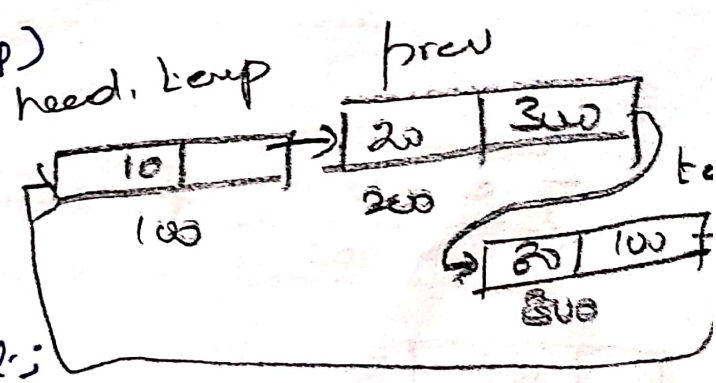 p)
head, temp
prev
10
100
20 300
200
te
30 100
300